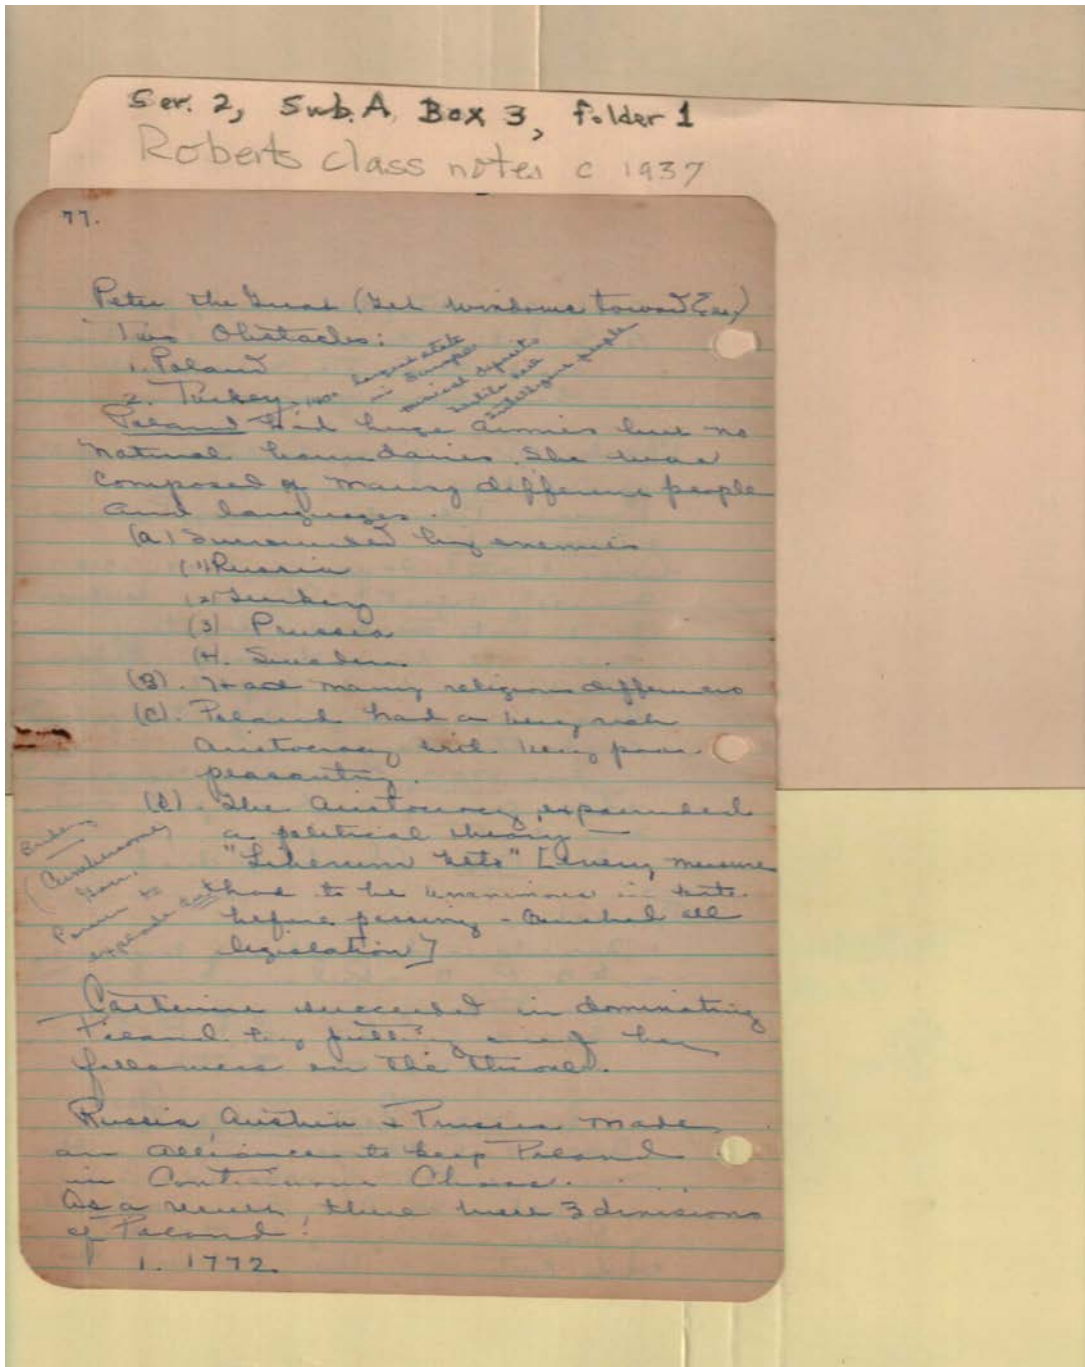 Ser. 2, Sub. A, Box 3, folder 1
Roberts class notes c 1937
77.
Peter the Great (Get windows toward Sea)
Two Obstacles:
1. Poland
2. Turkey
largest state
in Europe
mineral deposits
fertile soil
intelligent people
Poland had huge armies but no
natural boundaries. She was
composed of many different people
and languages.
(a) Surrounded by enemies
(1) Russia
(2) Turkey
(3) Prussia
(4. Sweden
(B). Had many religious differences
(C). Poland had a very rich
aristocracy and very poor
peasantry.
(d). The aristocracy expounded
a political theory —
"Liberum Veto" [Every measure
had to be unanimous in vote
before passing - Crushed all
legislation]
Power to
Catherine succeeded in dominating
Poland by putting one of her
followers on the throne.
Russia, Austria & Prussia made
an alliance to keep Poland
in Continuous Chaos.
As a result, there were 3 divisions
of Poland:
1. 1772.